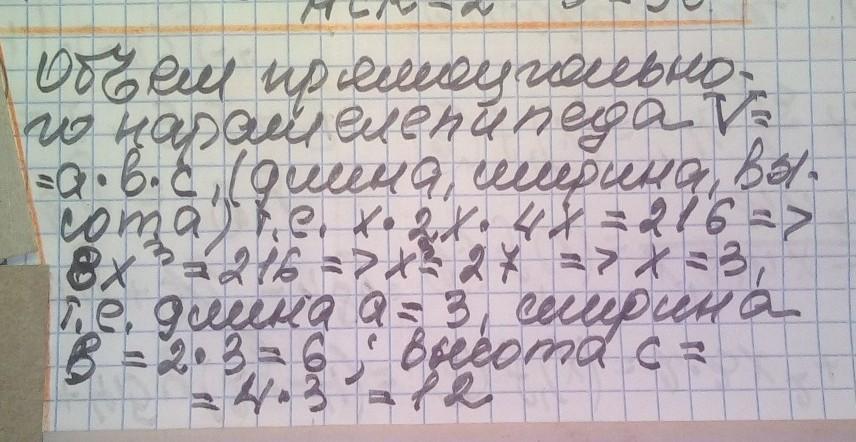 Объем прямоугольно-
го параллелепипеда V=
=a·в·c, (длина, ширина, вы-
сота) т.е. x·2x·4x = 216 =>
8x³ = 216 => x³= 27 => x = 3,
т.е. длина a = 3, ширина
в = 2·3 = 6; высота c =
= 4·3 = 12